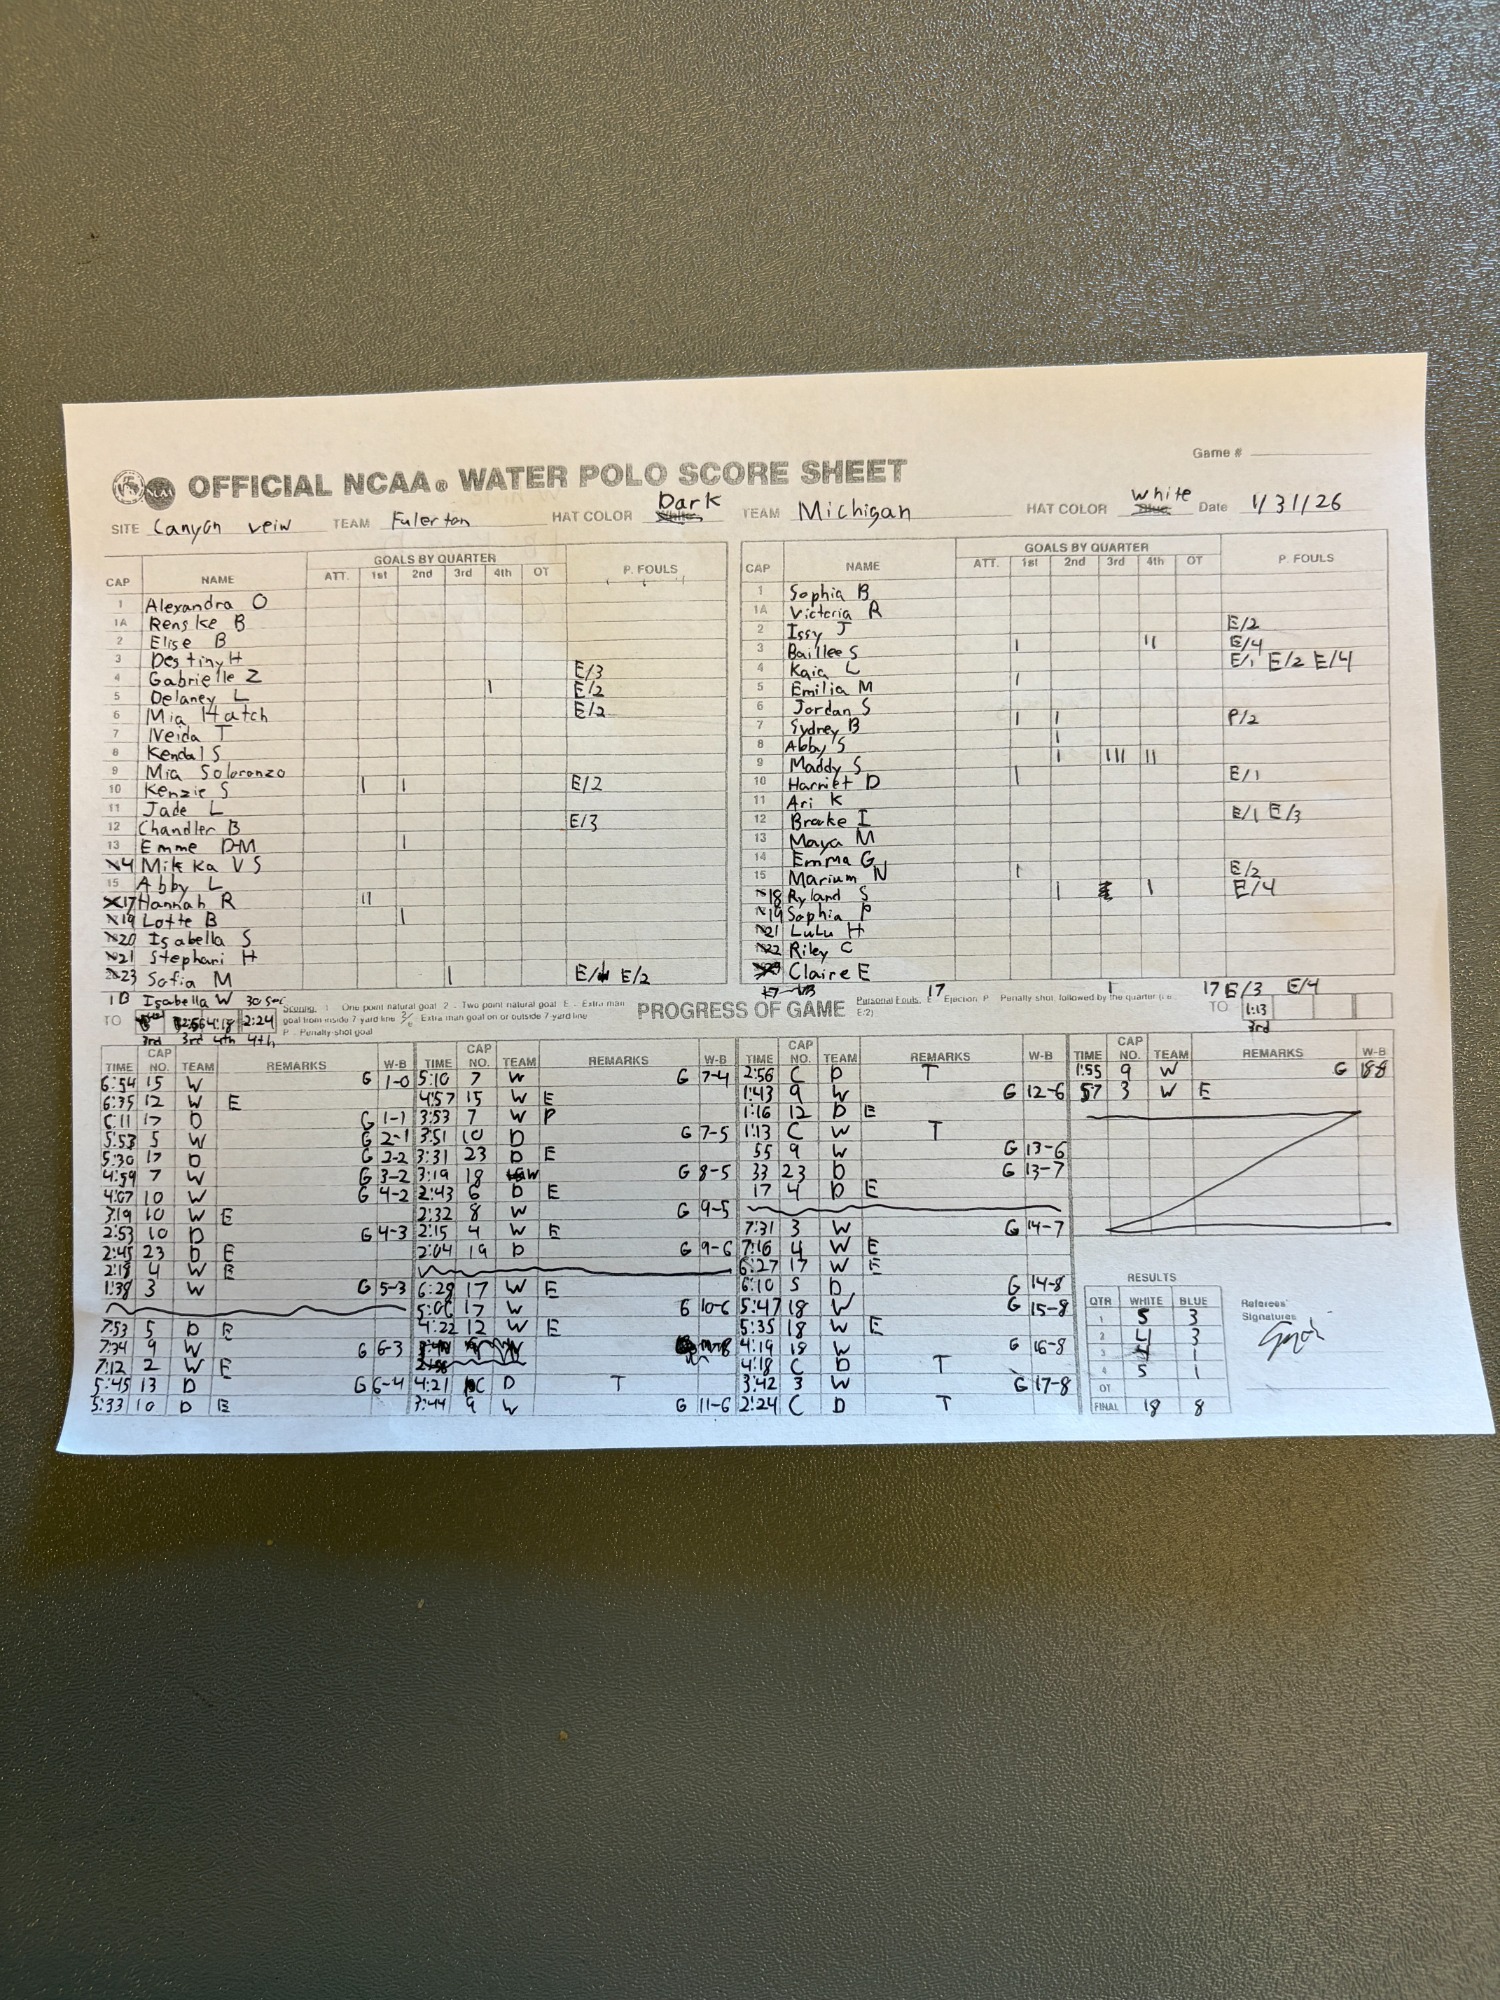 OFFICIAL NCAA® WATER POLO SCORE SHEET
Game #
SITE Canyon veiw TEAM Fulerton HAT COLOR Dark
TEAM Michigan HAT COLOR White Date 1/31/26
CAP NAME ATT. GOALS BY QUARTER 1st 2nd 3rd 4th OT P. FOULS
1 Alexandra O
1A Renske B
2 Elise B
3 Destiny H
4 Gabrielle Z E/3
5 Delaney L I E/2
6 Mia Hatch E/2
7 Neida T
8 Kendal S
9 Mia Soloronzo
10 Kenzie S I I E/2
11 Jade L
12 Chandler B E/3
13 Emme D-M I
4 Mikka V S
15 Abby L
17 Hannah R II
19 Lotte B I
20 Isabella S
21 Stephani H
23 Sofia M I E/2
1B Isabella W 30 sec
CAP NAME ATT. GOALS BY QUARTER 1st 2nd 3rd 4th OT P. FOULS
1 Sophia B
1A Victoria R
2 Issy J E/2
3 Baillee S I II E/4
4 Kaia L E/1 E/2 E/4
5 Emilia M I
6 Jordan S
7 Sydney B I I P/2
8 Abby S I
9 Maddy S I III II
10 Harriet D I E/1
11 Ari K
12 Brooke I E/1 E/3
13 Maya M
14 Emma G
15 Marium N I E/2
18 Ryland S I I E/4
19 Sophia P
21 Lulu H
22 Riley C
Claire E
17 I 17 E/3 E/4
TO 2:56 4:18 2:24
3rd 3rd 4th 4th
Scoring: 1 One point natural goal 2 - Two point natural goal E - Extra man
goal from inside 7 yard line Extra man goal on or outside 7 yard line
P - Penalty shot goal
PROGRESS OF GAME
Personal Fouls: E Ejection P Penalty shot, followed by the quarter (i.e.
E:2)
TO 1:13
3rd
TIME CAP NO. TEAM REMARKS W-B
6:54 15 W G 1-0
6:35 12 W E
6:11 17 D G 1-1
5:53 5 W G 2-1
5:30 17 D G 2-2
4:59 7 W G 3-2
4:07 10 W G 4-2
3:19 10 W E
2:53 10 D G 4-3
2:45 23 D E
2:18 4 W E
1:38 3 W G 5-3
7:53 5 D E
7:34 9 W G 6-3
7:12 2 W E
5:45 13 D G 6-4
5:33 10 D E
TIME CAP NO. TEAM REMARKS W-B
5:10 7 W G 7-4
4:57 15 W E
3:53 7 W P
3:51 10 D G 7-5
3:31 23 D E
3:19 18 W G 8-5
2:43 6 D E
2:32 8 W G 9-5
2:15 4 W E
2:04 19 D G 9-6
6:29 17 W E
5:06 17 W G 10-6
4:22 12 W E
4:21 C D T
3:44 9 W G 11-6
TIME CAP NO. TEAM REMARKS W-B
2:56 C D T
1:43 9 W G 12-6
1:16 12 D E
1:13 C W T
55 9 W G 13-6
33 23 D G 13-7
17 4 D E
7:31 3 W G 14-7
7:16 4 W E
6:27 17 W E
6:10 5 D G 14-8
5:47 18 W G 15-8
5:35 18 W E
4:19 18 W G 16-8
4:18 C D T
3:42 3 W G 17-8
2:24 C D T
TIME CAP NO. TEAM REMARKS W-B
1:55 9 W G 18-8
57 3 W E
RESULTS
QTR WHITE BLUE
1 5 3
2 4 3
3 4 1
4 5 1
OT
FINAL 18 8
Referees'
Signatures